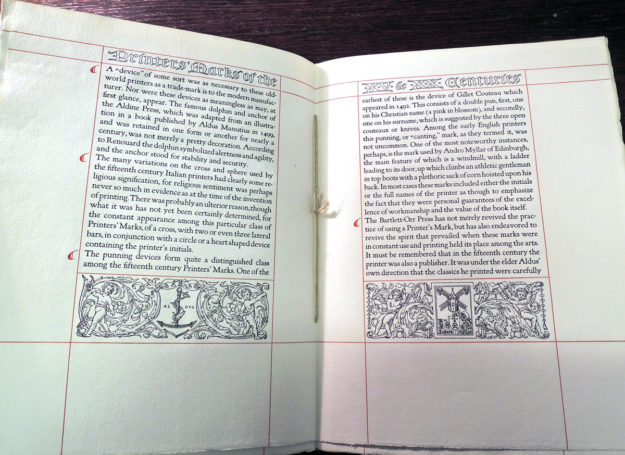 Printers' Marks of the
A “device” of some sort was as necessary to these old-
world printers as a trade-mark is to the modern manufac-
turer. Nor were these devices as meaningless as may, at
first glance, appear. The famous dolphin and anchor of
the Aldine Press, which was adapted from an illustra-
tion in a book published by Aldus Manutius in 1499,
and was retained in one form or another for nearly a
century, was not merely a pretty decoration. According
to Renouard the dolphin symbolized alertness and agility,
and the anchor stood for stability and security.
The many variations on the cross and sphere used by
the fifteenth century Italian printers had clearly some re-
ligious signification, for religious sentiment was perhaps
never so much in evidence as at the time of the invention
of printing. There was probably an ulterior reason, though
what it was has not yet been certainly determined, for
the constant appearance among this particular class of
Printers' Marks, of a cross, with two or even three lateral
bars, in conjunction with a circle or a heart shaped device
containing the printer's initials.
The punning devices form quite a distinguished class
among the fifteenth century Printers' Marks. One of the
AL DVS
XV & XVI Centuries
earliest of these is the device of Gillet Couteau which
appeared in 1492. This consists of a double pun, first, one
on his Christian name (a pink in blossom), and secondly,
one on his surname, which is suggested by the three open
couteaux or knives. Among the early English printers
this punning, or “canting,” mark, as they termed it, was
not uncommon. One of the most noteworthy instances,
perhaps, is the mark used by Andro Myllar of Edinburgh,
the main feature of which is a windmill, with a ladder
leading to its door, up which climbs an athletic gentleman
in top boots with a plethoric sack of corn hoisted upon his
back. In most cases these marks included either the initials
or the full names of the printer as though to emphasize
the fact that they were personal guarantees of the excel-
lence of workmanship and the value of the book itself.
The Bartlett-Orr Press has not merely revived the prac-
tice of using a Printer's Mark, but has also endeavored to
revive the spirit that prevailed when these marks were
in constant use and printing held its place among the arts.
It must be remembered that in the fifteenth century the
printer was also a publisher. It was under the elder Aldus'
own direction that the classics he printed were carefully